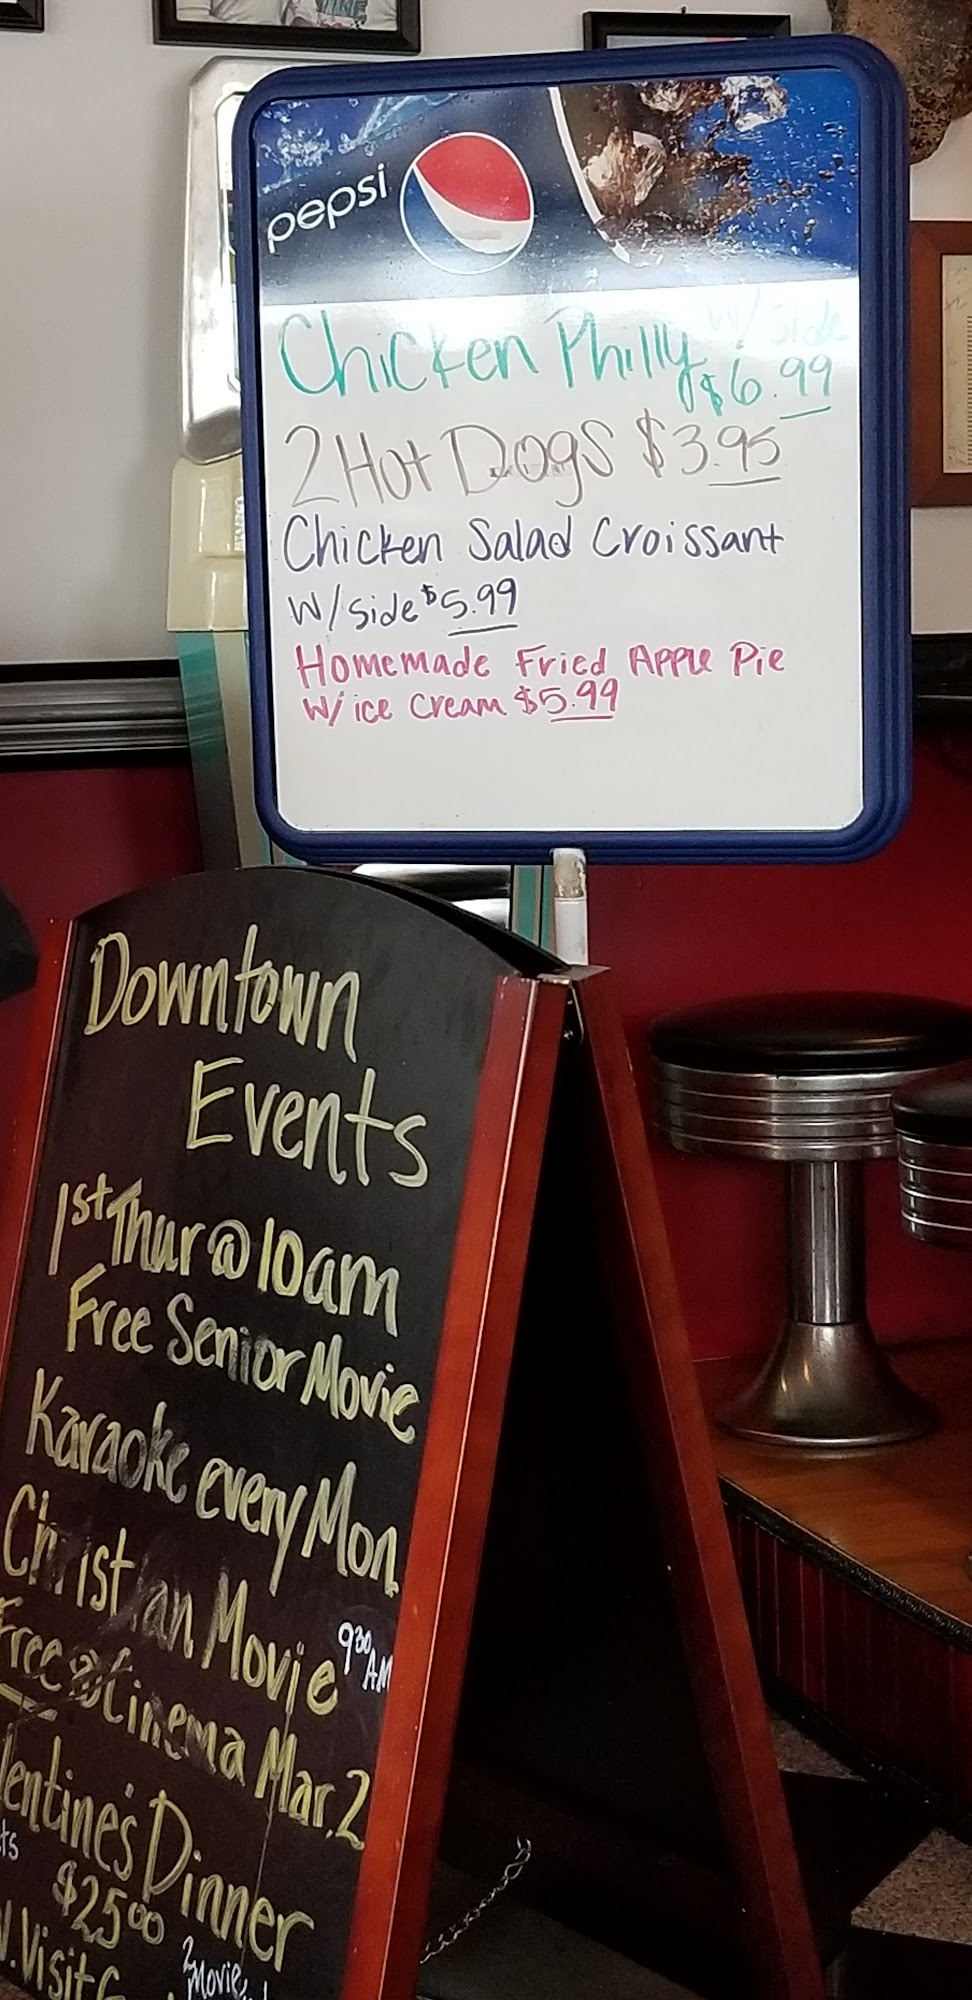 pepsi
Chicken Philly w/ side
$6.99
2 Hot Dogs $3.95
Chicken Salad Croissant
w/ side $5.99
Homemade Fried Apple Pie
w/ ice cream $5.99
Downtown
Events
1st Thur @ 10am
Free Senior Movie
Karaoke every Mon
Christian Movie 9:30 AM
Free @ Cinema Mar. 2
lentine's Dinner
$25.00
Visit
2 Movie